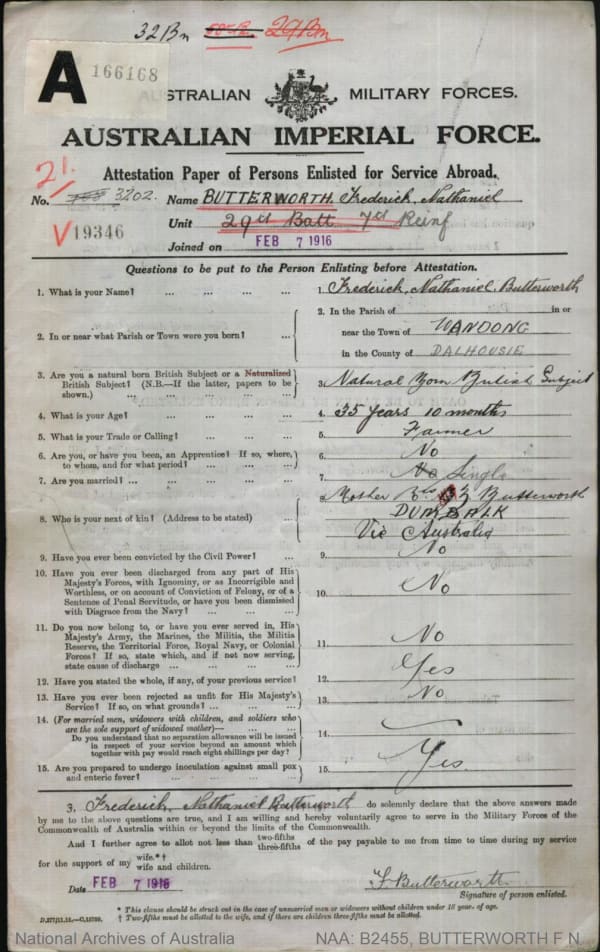 32Bn 29Bn
A 166168
AUSTRALIAN MILITARY FORCES.
AUSTRALIAN IMPERIAL FORCE.
Attestation Paper of Persons Enlisted for Service Abroad.
21.
No. 3202. Name BUTTERWORTH. Frederick, Nathaniel
Unit 29th Batt 7th Reinf
V19346
Joined on FEB 7 1916
Questions to be put to the Person Enlisting before Attestation.
1. What is your Name? ... ... ... ... 1. Frederick, Nathaniel. Butterworth
2. In or near what Parish or Town were you born? ...
2. In the Parish of in or
near the Town of WANDONG
in the County of DALHOUSIE
3. Are you a natural born British Subject or a Naturalized
British Subject? (N.B.—If the latter, papers to be
shown.) ... ... ... ... ...
3. Natural Born British Subject
4. What is your Age? ... ... ... ... 4. 35 Years 10 months
5. What is your Trade or Calling? ... ... ... 5. Farmer
6. Are you, or have you been, an Apprentice? If so, where,
to whom, and for what period? ... ... ...
6. No
7. Are you married? ... ... ... ... 7. No Single
8. Who is your next of kin? (Address to be stated) ...
8. Mother Butterworth
DUMBALK
Vic Australia
9. Have you ever been convicted by the Civil Power? ... 9. No
10. Have you ever been discharged from any part of His
Majesty's Forces, with Ignominy, or as Incorrigible and
Worthless, or on account of Conviction of Felony, or of a
Sentence of Penal Servitude, or have you been dismissed
with Disgrace from the Navy? ... ... ...
10. No
11. Do you now belong to, or have you ever served in, His
Majesty's Army, the Marines, the Militia, the Militia
Reserve, the Territorial Force, Royal Navy, or Colonial
Forces? If so, state which, and if not now serving,
state cause of discharge ... ... ... ...
11. No
12. Have you stated the whole, if any, of your previous service? 12. Yes
13. Have you ever been rejected as unfit for His Majesty's
Service? If so, on what grounds? ... ... ...
13. No
14. (For married men, widowers with children, and soldiers who
are the sole support of widowed mother)— ... ...
Do you understand that no separation allowance will be issued
in respect of your service beyond an amount which
together with pay would reach eight shillings per day?
14.
15. Are you prepared to undergo inoculation against small pox
and enteric fever? ... ... ... ...
15. Yes.
I, Frederick, Nathaniel Butterworth do solemnly declare that the above answers made
by me to the above questions are true, and I am willing and hereby voluntarily agree to serve in the Military Forces of the
Commonwealth of Australia within or beyond the limits of the Commonwealth.
And I further agree to allot not less than two-fifths three-fifths of the pay payable to me from time to time during my service
for the support of my wife.*† wife and children.
Date FEB 7 1916 F. Butterworth.
Signature of person enlisted.
* This clause should be struck out in the case of unmarried men or widowers without children under 18 years. of age.
† Two-fifths must be allotted to the wife, and if there are children three-fifths must be allotted.
National Archives of Australia NAA: B2455, BUTTERWORTH F N